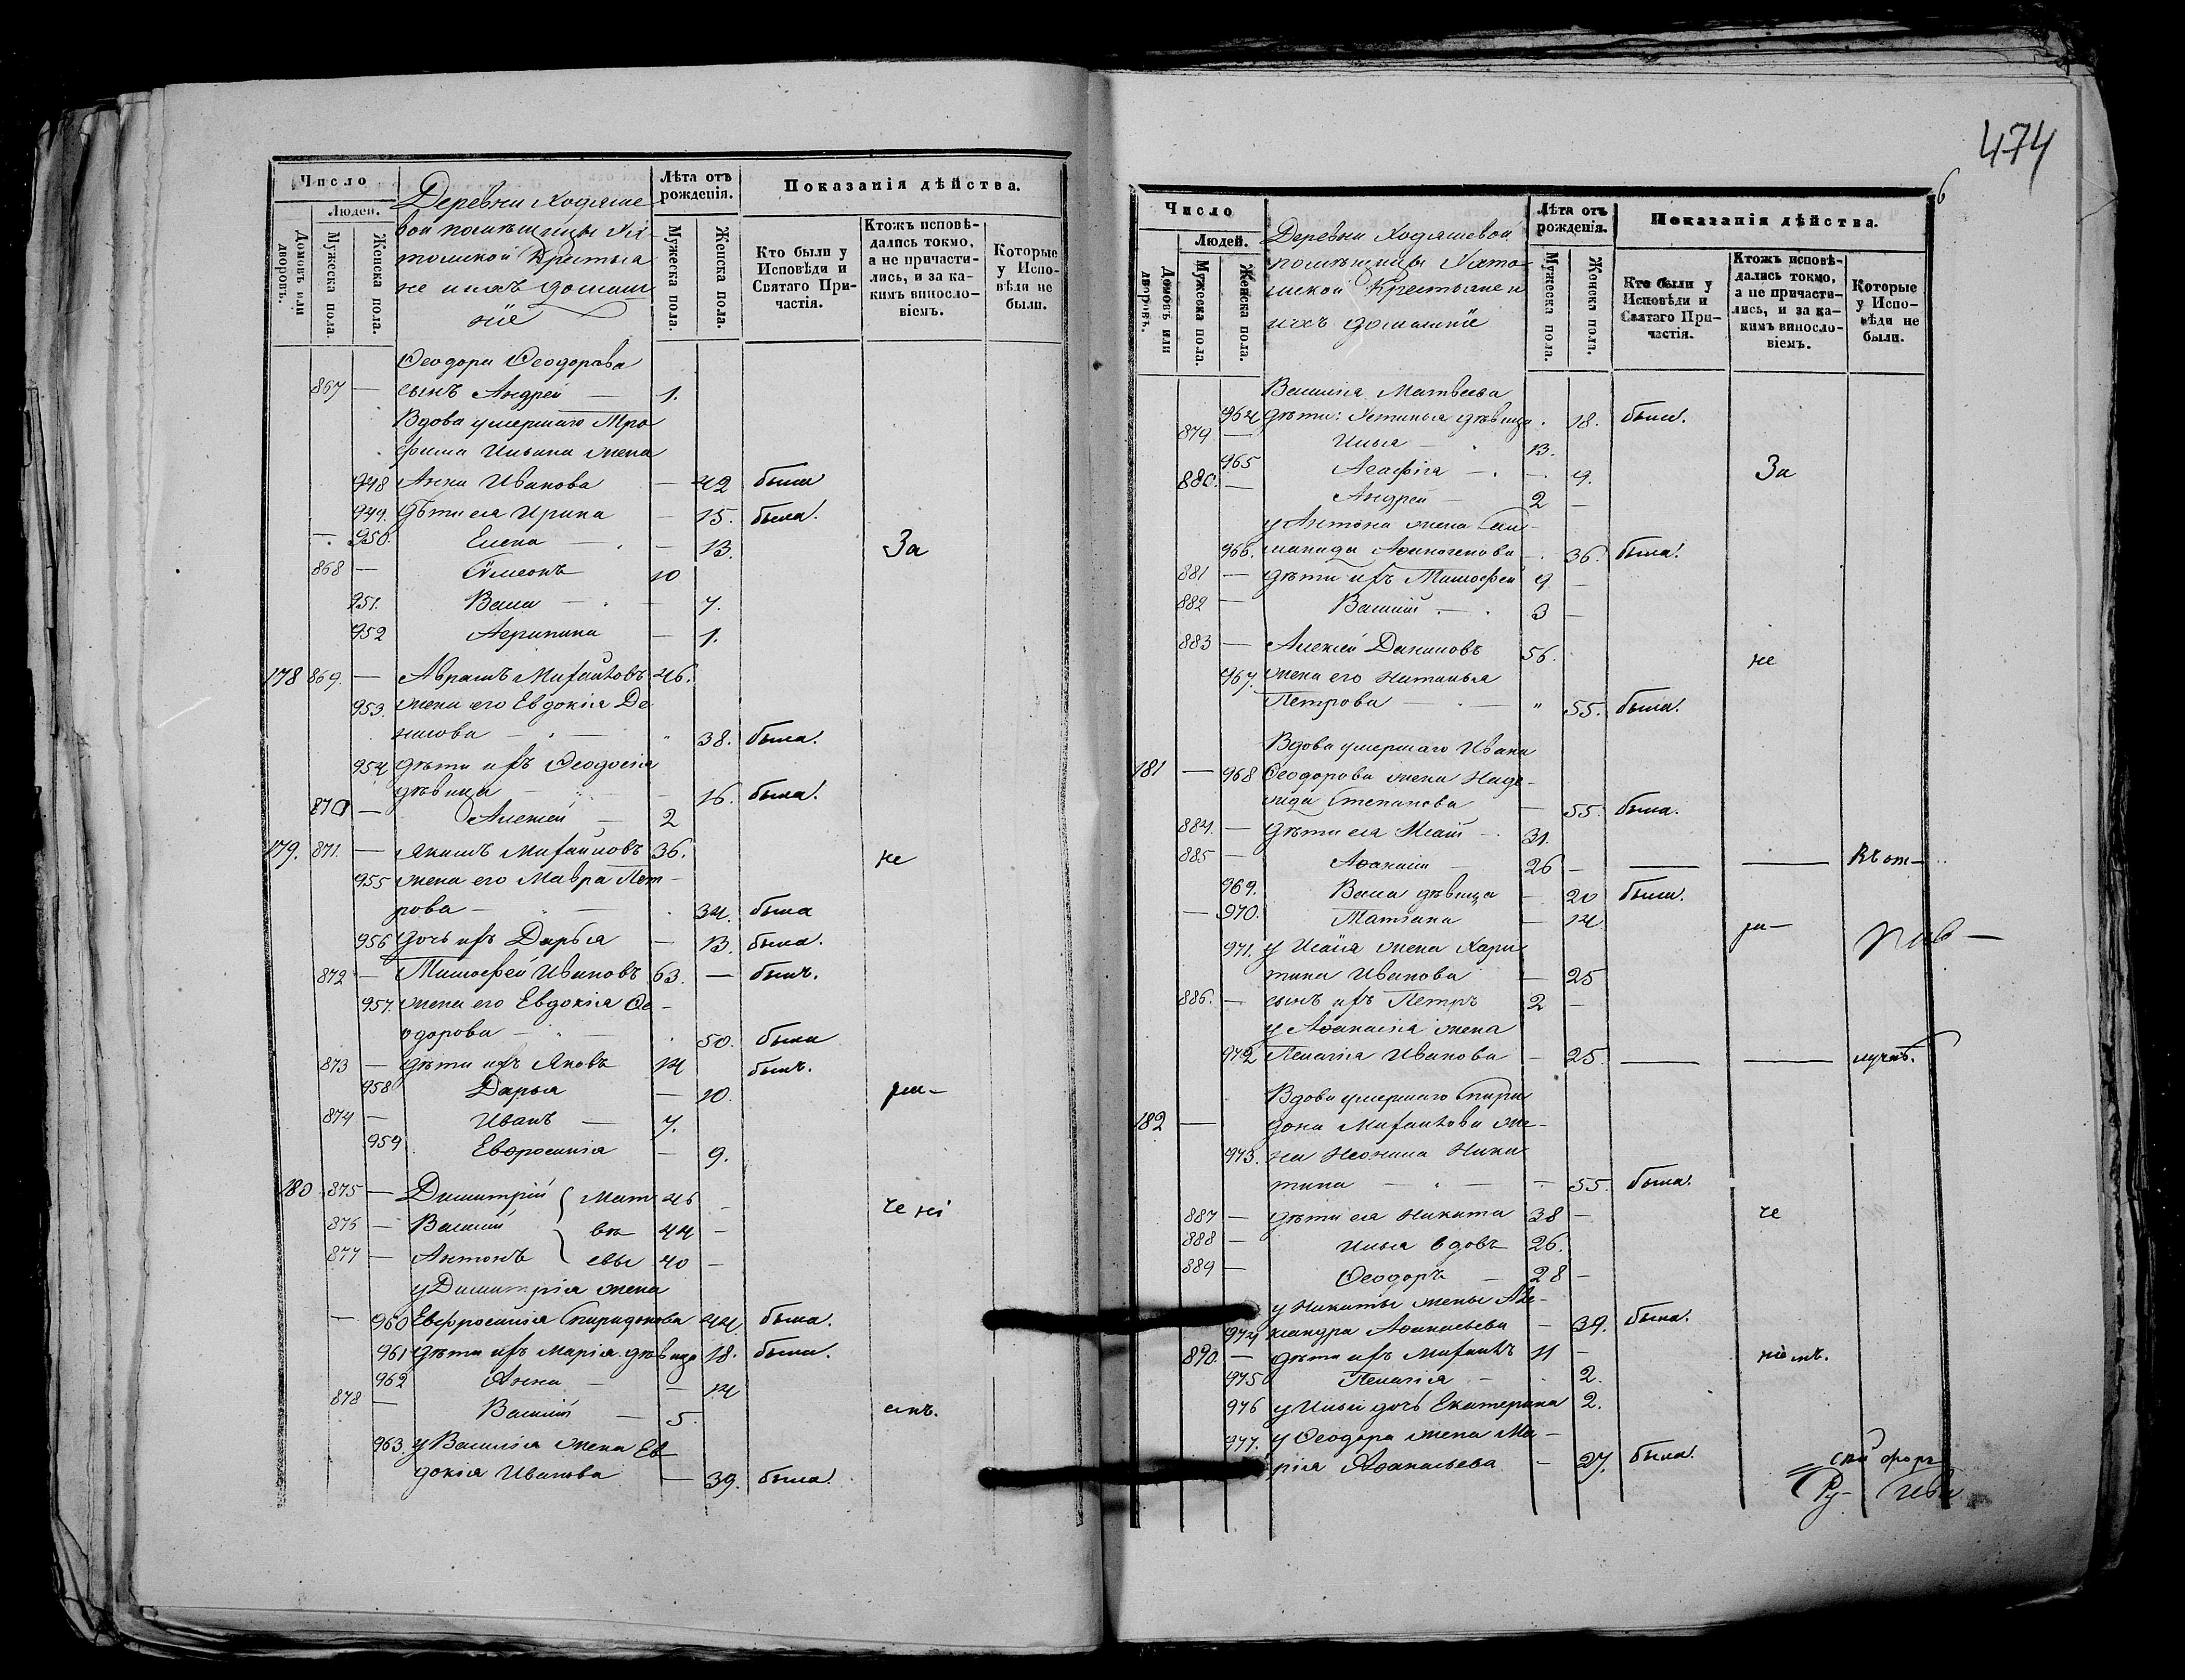 474
6
Число
Людей.
Домовъ или дворовъ.
Мужеска пола.
Женска пола.
Деревни Ходяше
вой помѣщицы
Крестья
не и ихъ домаш
ніе
Лѣта отъ рожденія.
Мужеска пола.
Женска пола.
Показанія дѣйства.
Кто были у Исповѣди и Святаго Причастія.
Ктожъ исповѣдались токмо, а не причастились, и за какимъ винословіемъ.
Которые у Исповѣди не были.
Ѳеодора Ѳеодорова
867 — сынъ Андрей — 1.
Вдова умершаго Тро
фима Ильина жена
948 Анна Иванова — 42 была
949. дѣти ея Ирина — 15. была.
— 950. Елена — 13. За
868 — Сѵмеонъ 10
951. Васса — 7.
952 Агрипина — 1.
178 869. — Аврамъ Михайловъ 46.
953. жена его Евдокія Де
нисова — 38. была.
954 дѣти ихъ Ѳеодосія
дѣвица — 16. была.
870 — Алексей — 2
179. 871. — Якимъ Михайловъ 36. не
955 жена его Мавра Пет
рова — 34. была
956 дочь ихъ Дарья — 13. была.
872 — Тимофей Ивановъ 63. — былъ.
957. жена его Евдокія Ѳе
одорова — 50. была
873 — дѣти ихъ Яковъ 14 былъ.
958 Дарья — 10. ра-
874 — Иванъ — 7.
959 Евфросинія — 9.
180 875 — Димитрій Мат 46 — че ні
876 — Василій вѣ 44 —
877 — Антонъ евы 40 —
у Димитрія жена
— 960 Евфросинія Спиридонова 44. была.
961 дѣти ихъ Марія дѣвица 18. была.
962 Анна — 14
878 — Василій — 5. емъ.
963. у Василія жена Ев
докія Иванова — 39. была.
Число
Людей.
Домовъ или дворовъ.
Мужеска пола.
Женска пола.
Деревни Ходяшевой
помѣщицы
Крестьяне и
ихъ домашніе
Лѣта отъ рожденія.
Мужеска пола.
Женска пола.
Показанія дѣйства.
Кто были у Исповѣди и Святаго Причастія.
Ктожъ исповѣдались токмо, а не причастились, и за какимъ винословіемъ.
Которые у Исповѣди не были.
Василія Матвеева
964 дѣти: Устинья дѣвица 18. была.
879 — Илья — 13.
965 Агафія — 9. За
880. — Андрей — 2 —
у Антона жена Сал
966. манида Афиногенова — 36. была.
881 — дѣти ихъ Тимофей 9 —
882 — Василій — 3 —
883 — Алексей Даниловъ 56. не
967. жена его Наталья
Петрова — 55. была.
Вдова умершаго Ивана
181 — 968 Ѳеодорова жена Наде
жда Степанова — 55. была.
884. — дѣти ея Исаій — 31.
885 — Аѳанасій — 26 — — — Въ от-
969. Васса дѣвица — 20 была.
— 970. Татіана — 14 ра-
971. у Исаія жена Хари
тина Иванова — 25
886. — сынъ ихъ Петръ 2 —
у Аѳанасія жена
972 Пелагія Иванова — 25. — — лучкѣ.
Вдова умершаго Спири
182 — дона Михайлова же
973. на Неонила Ники
тина — 55. была.
887 — дѣти ея Никита 38 — че
888 — Илья вдовъ 26.
889 — Ѳеодоръ — 28 —
у Никиты жены Але
974 ксандра Аѳанасьева — 39. была.
890. — дѣти ихъ Михаилъ 11 — ніемъ.
975 Пелагія — 2.
976 у Ильи дочь Екатерина 2.
977. у Ѳеодора жена Ма
рія Аѳанасьева — 27. была.